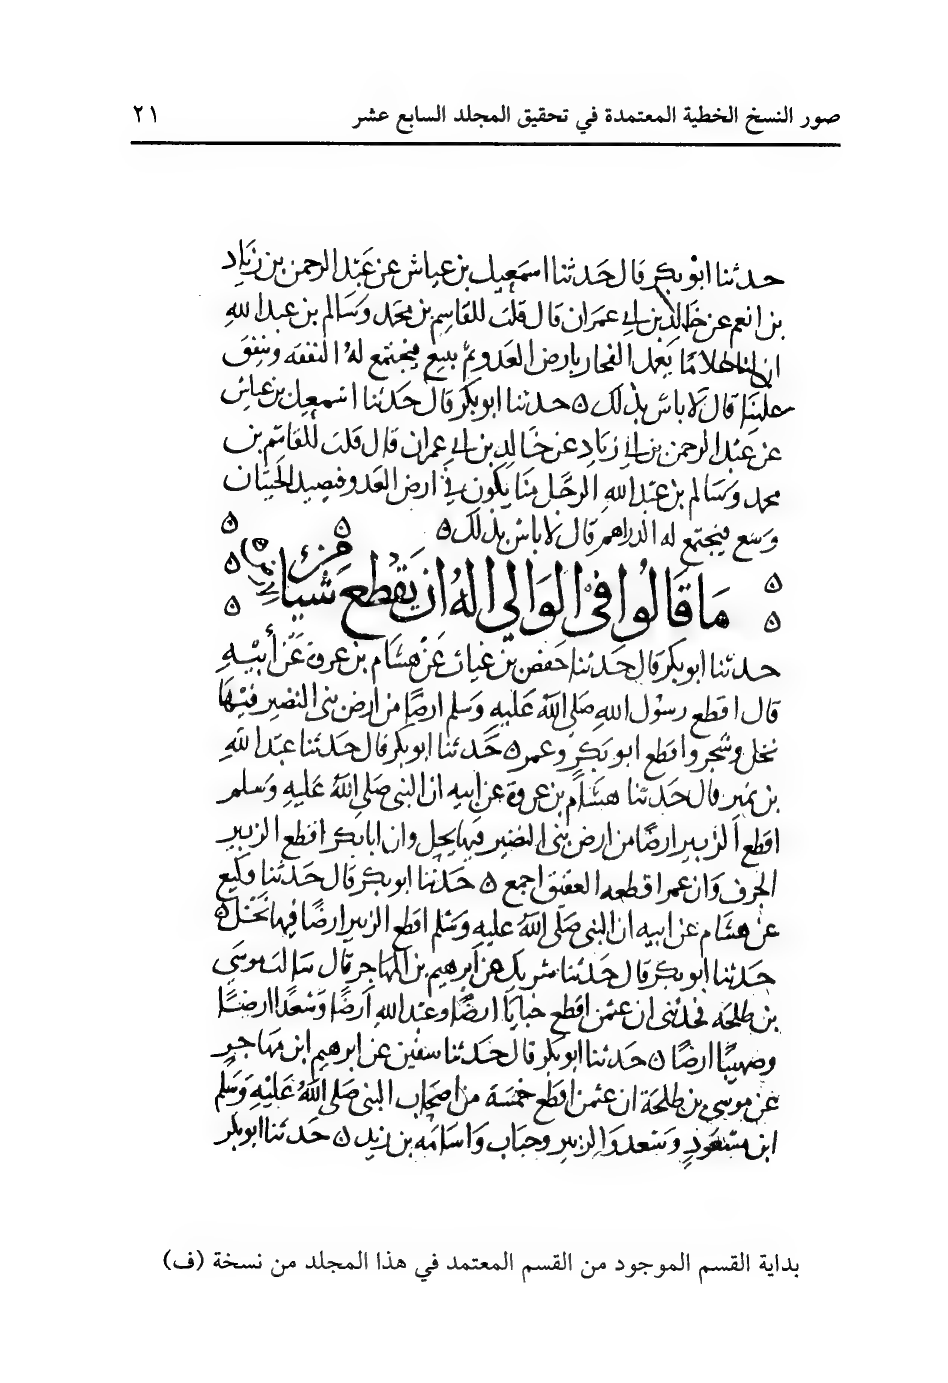 صور النسخ الخطية المعتمدة في تحقيق المجلد السابع عشر ٢١
حدثنا ابو بكر قال حدثنا اسمعيل بن عياش عن عبد الرحمن بن زياد
بن انعم عن خالد بن ابي عمران قال قلت للقاسم بن محمد وسالم بن عبد الله
ان لنا غلاما يعمل الفخار بارض العدو ثم يبيع فيجتمع له النفقه وينفق
علينا قال لا باس بذلك ٥ حدثنا ابو بكر قال حدثنا اسمعيل بن عياش
عن عبد الرحمن بن زياد عن خالد بن ابي عمران قال قلت للقاسم بن
محمد وسالم بن عبد الله الرجل منا يكون في ارض العدو فيصيد الحيتان
وسع فيجتمع له الدراهم قال لا باس بذلك ٥
ما قالوا في الوالي اله ان يقطع شيئا من
حدثنا ابو بكر قال حدثنا حفص بن غياث عن هشام بن عروة عن أبيه
قال اقطع رسول الله صلى الله عليه وسلم ارضا من ارض بني النضير فيها
نخل وشجر واقطع ابو بكر وعمر ٥ حدثنا ابو بكر قال حدثنا عبد الله
بن نمير قال حدثنا هشام بن عروة عن ابيه ان النبي صلى الله عليه وسلم
اقطع الزبير ارضا من ارض بني النضير فيها نخل وان ابا بكر اقطع الزبير
الجرف وان عمر اقطعه العقيق اجمع ٥ حدثنا ابو بكر قال حدثنا وكيع
عن هشام عن ابيه ان النبي صلى الله عليه وسلم اقطع الزبير ارضا فيها نخل ٥
حدثنا ابو بكر قال حدثنا شريك عن ابرهيم بن المهاجر قال سالت موسى
بن طلحه فحدثني ان عثمن اقطع خبابا ارضا وعبد الله ارضا وسعدا ارضا
وصهيبا ارضا ٥ حدثنا ابو بكر قال حدثنا سفين عن ابرهيم ابن مهاجر
عن موسى بن طلحة ان عثمن اقطع خمسة من اصحاب النبي صلى الله عليه وسلم
ابن مسعود وسعد والزبير وخباب واسامه بن زيد ٥ حدثنا ابو بكر
بداية القسم الموجود من القسم المعتمد في هذا المجلد من نسخة (ف)